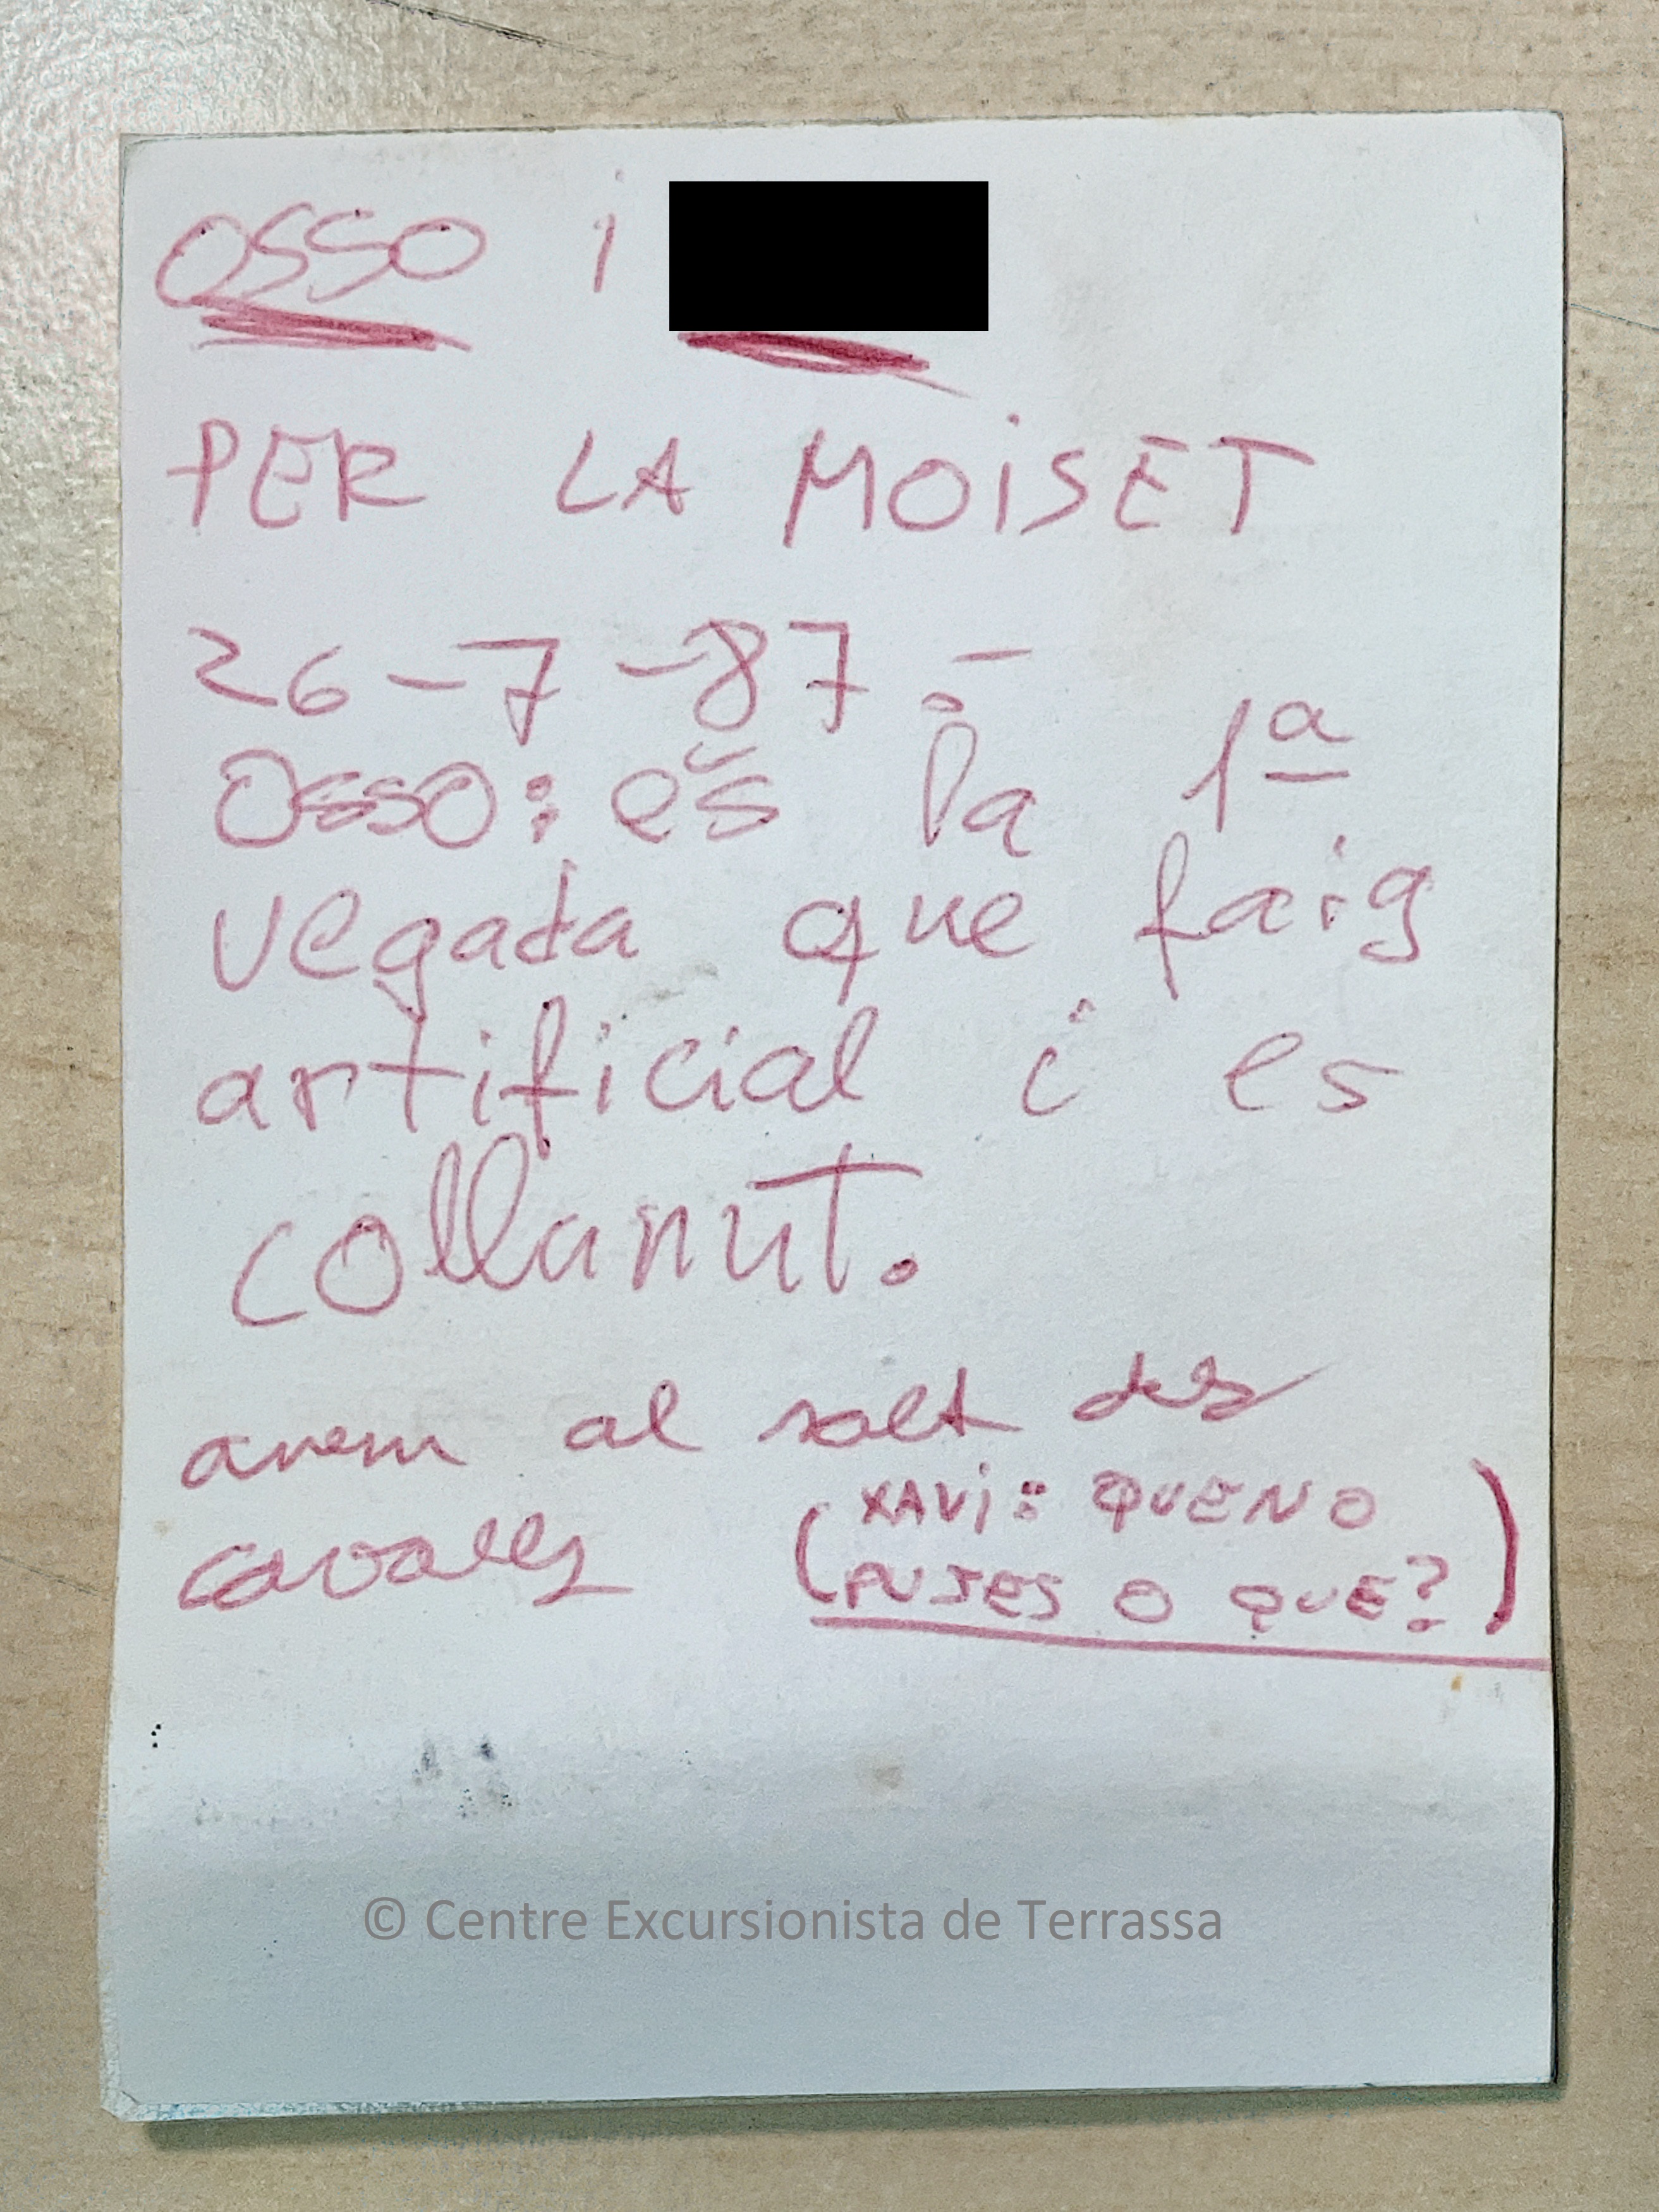 OSSO i
PER LA MOiSET
26-7-87.-
OSSO: és la 1ª
vegada que faig
artificial i es
collanut.
anem al salt dels
cavalls (XAVi: QUE NO
PUJES O QUE?)
© Centre Excursionista de Terrassa